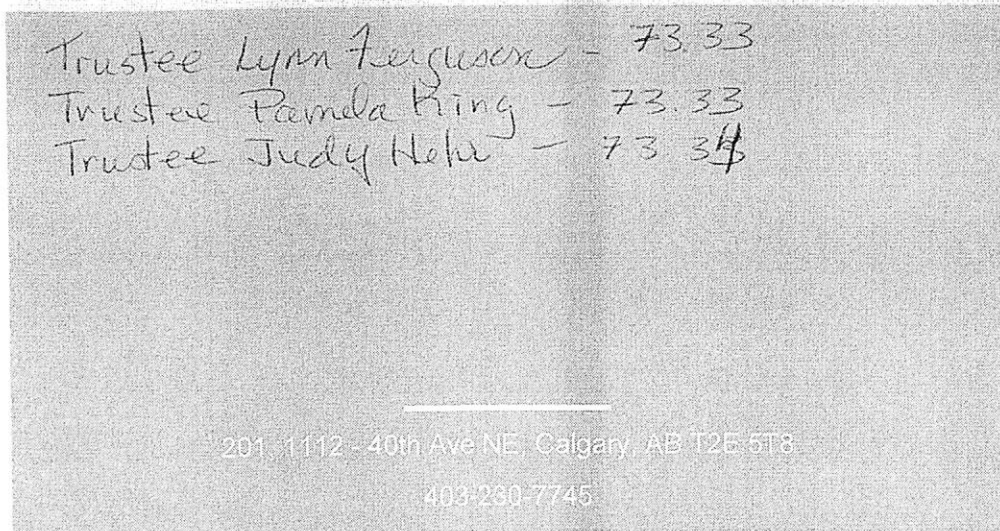 Trustee Lynn Ferguson - 73.33
Trustee Pamela King - 73.33
Trustee Judy Hehr - 73 34
201, 1112 - 40th Ave NE, Calgary, AB T2E 5T8
403-230-7745